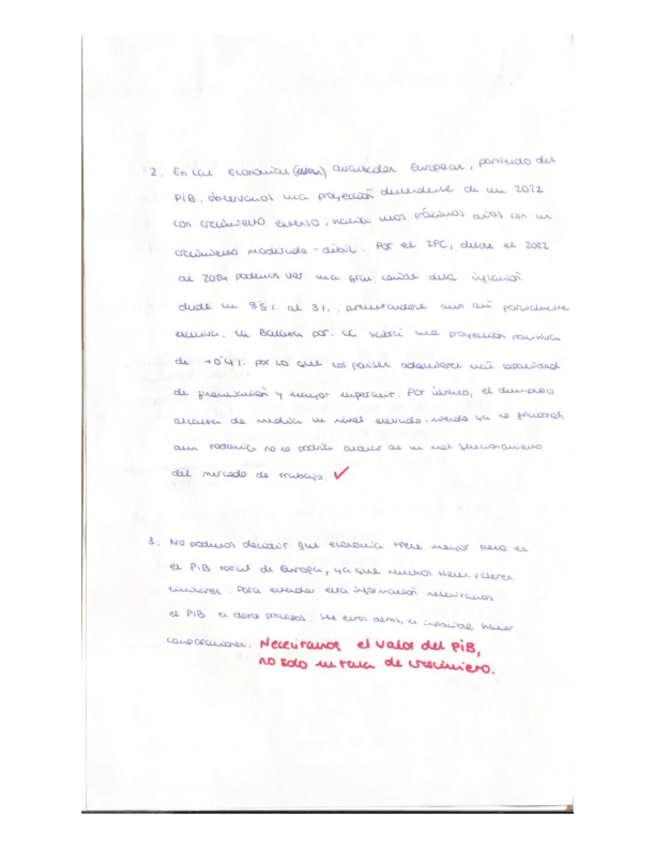 2. En las economías avanzadas Europeas, partiendo del
PIB, observamos una proyección descendente de un 2022
con crecimiento extenso, hacia unos próximos años con un
crecimiento moderado - débil. Por el IPC, desde el 2022
al 2024 podemos ver una gran caída de la inflación
desde un 8'5% al 3%., presentandose aun así
excesiva. La Balanza por. CC habrá una proyección positiva
de +0'4% por lo que los países adquieren una capacidad
de financiación y mayor superavit. Por último, el desempleo
alcanza de media un nivel elevado, siendo ya no
aun todavía no se podría de un mal funcionamiento
del mercado de trabajo. ✓
3. No podemos decidir que economía tiene mayor peso en
el PIB total de Europa, ya que muchos tienen valores
similares. Para entender esta información necesitamos
el PIB en datos precisos. Sin esos datos, es imposible hacer
comparaciones. Necesitamos el valor del PIB,
no solo su tasa de crecimiento.